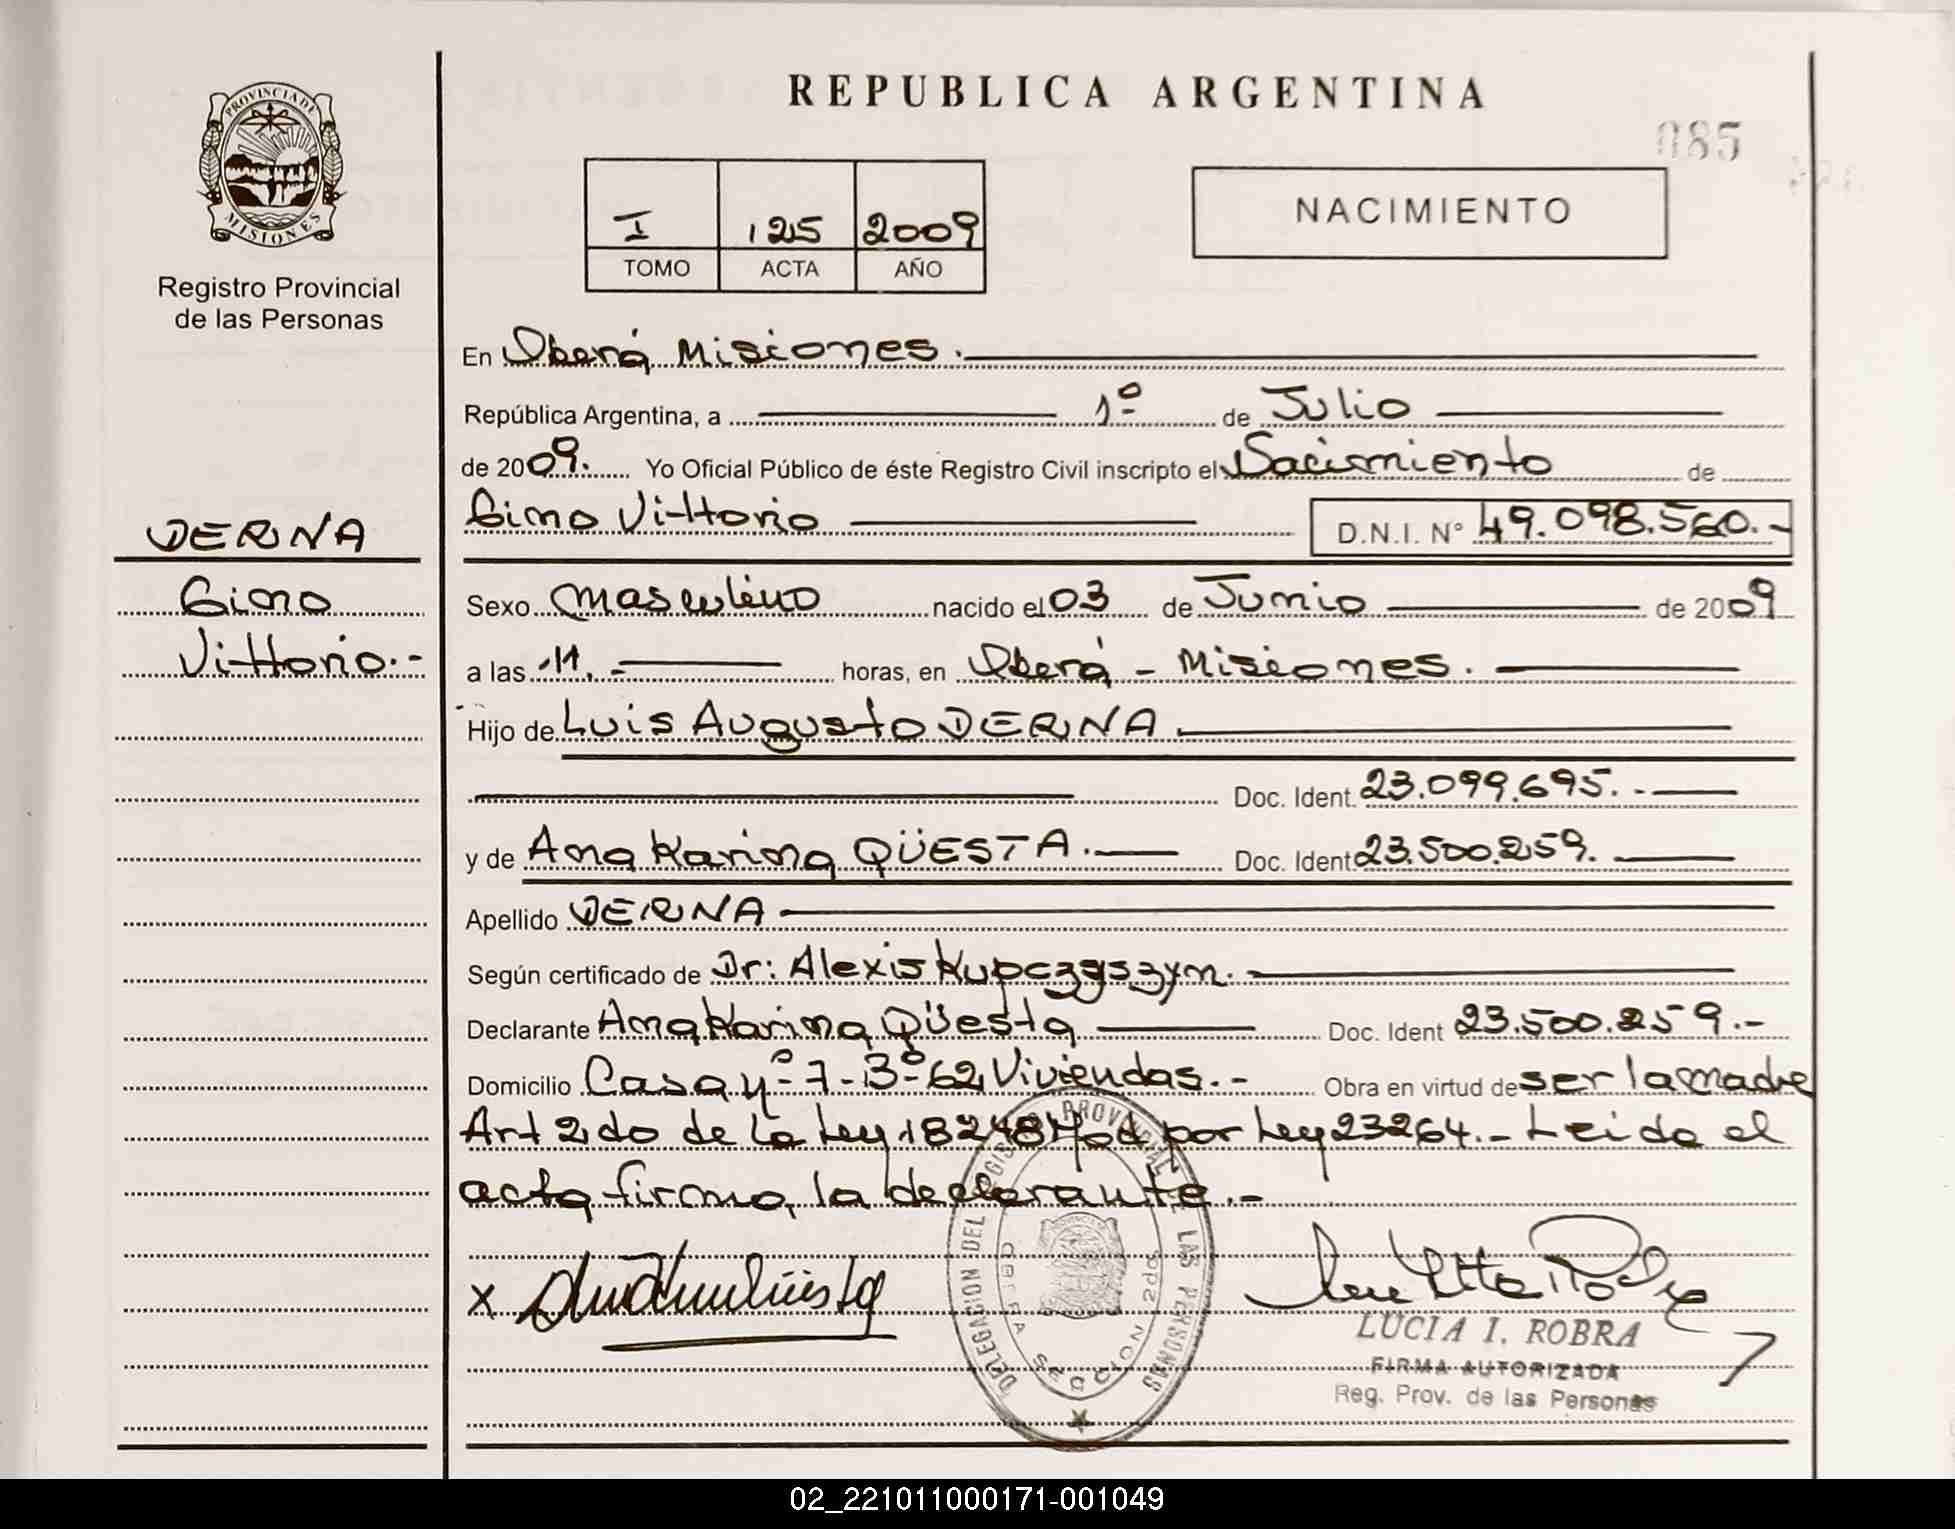 REPUBLICA ARGENTINA
085
PROVINCIA DE
MISIONES
Registro Provincial
de las Personas
I 125 2009
TOMO ACTA AÑO
NACIMIENTO
En Oberá Misiones.
República Argentina, a 1º de Julio
de 2009. Yo Oficial Público de éste Registro Civil inscripto el Nacimiento de
Gino Vittorio D.N.I. Nº 49.098.560.-
DERNA
Gino
Vittorio.-
Sexo Masculino nacido el 03 de Junio de 2009
a las 11.- horas, en Oberá - Misiones.
Hijo de Luis Augusto DERNA
Doc. Ident. 23.099.695.-
y de Ana Karina QÜESTA.- Doc. Ident 23.500.259.
Apellido DERNA
Según certificado de Dr: Alexis Kupczyszyn.
Declarante Ana Karina Qüesta Doc. Ident 23.500.259.-
Domicilio Casa nº 7-Bº 62 Viviendas.- Obra en virtud de ser la madre
Art 2do de la Ley 18248 Mod por Ley 23264.- Leida el
acta, firma, la declarante.-
X
DELEGACION DEL REGISTRO PROVINCIAL DE LAS PERSONAS
OBERA
LUCIA I. ROBRA
FIRMA AUTORIZADA
Reg. Prov. de las Personas
02_221011000171-001049